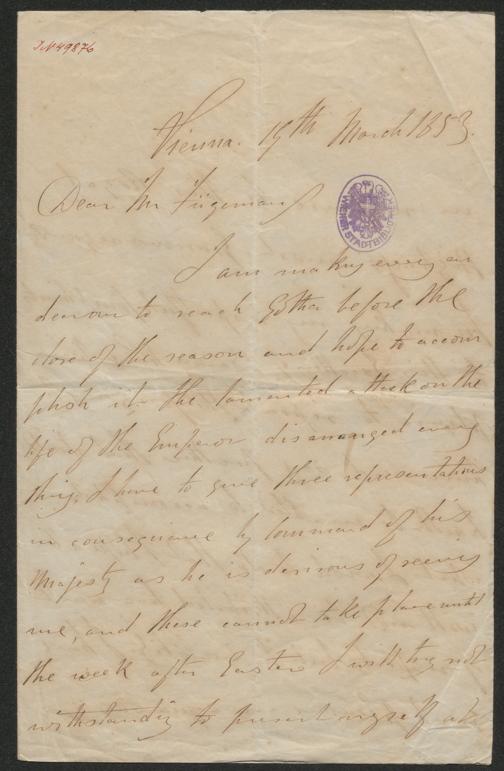 I.N 49876
Vienna. 19th March 1853.
Dear Mr
WIENER STADTBIBLIOTHEK
I am making every en
deavour to reach Gotha before the
close of the season and hope to accom
plish it. the lamented attack on the
life of the Emperor disarranged every
thing. I have to give three representations
in consequence by Command of his
Majesty as he is desirous of seeing
me, and these cannot take place until
the week after Easter I will try not
withstanding to present myself at